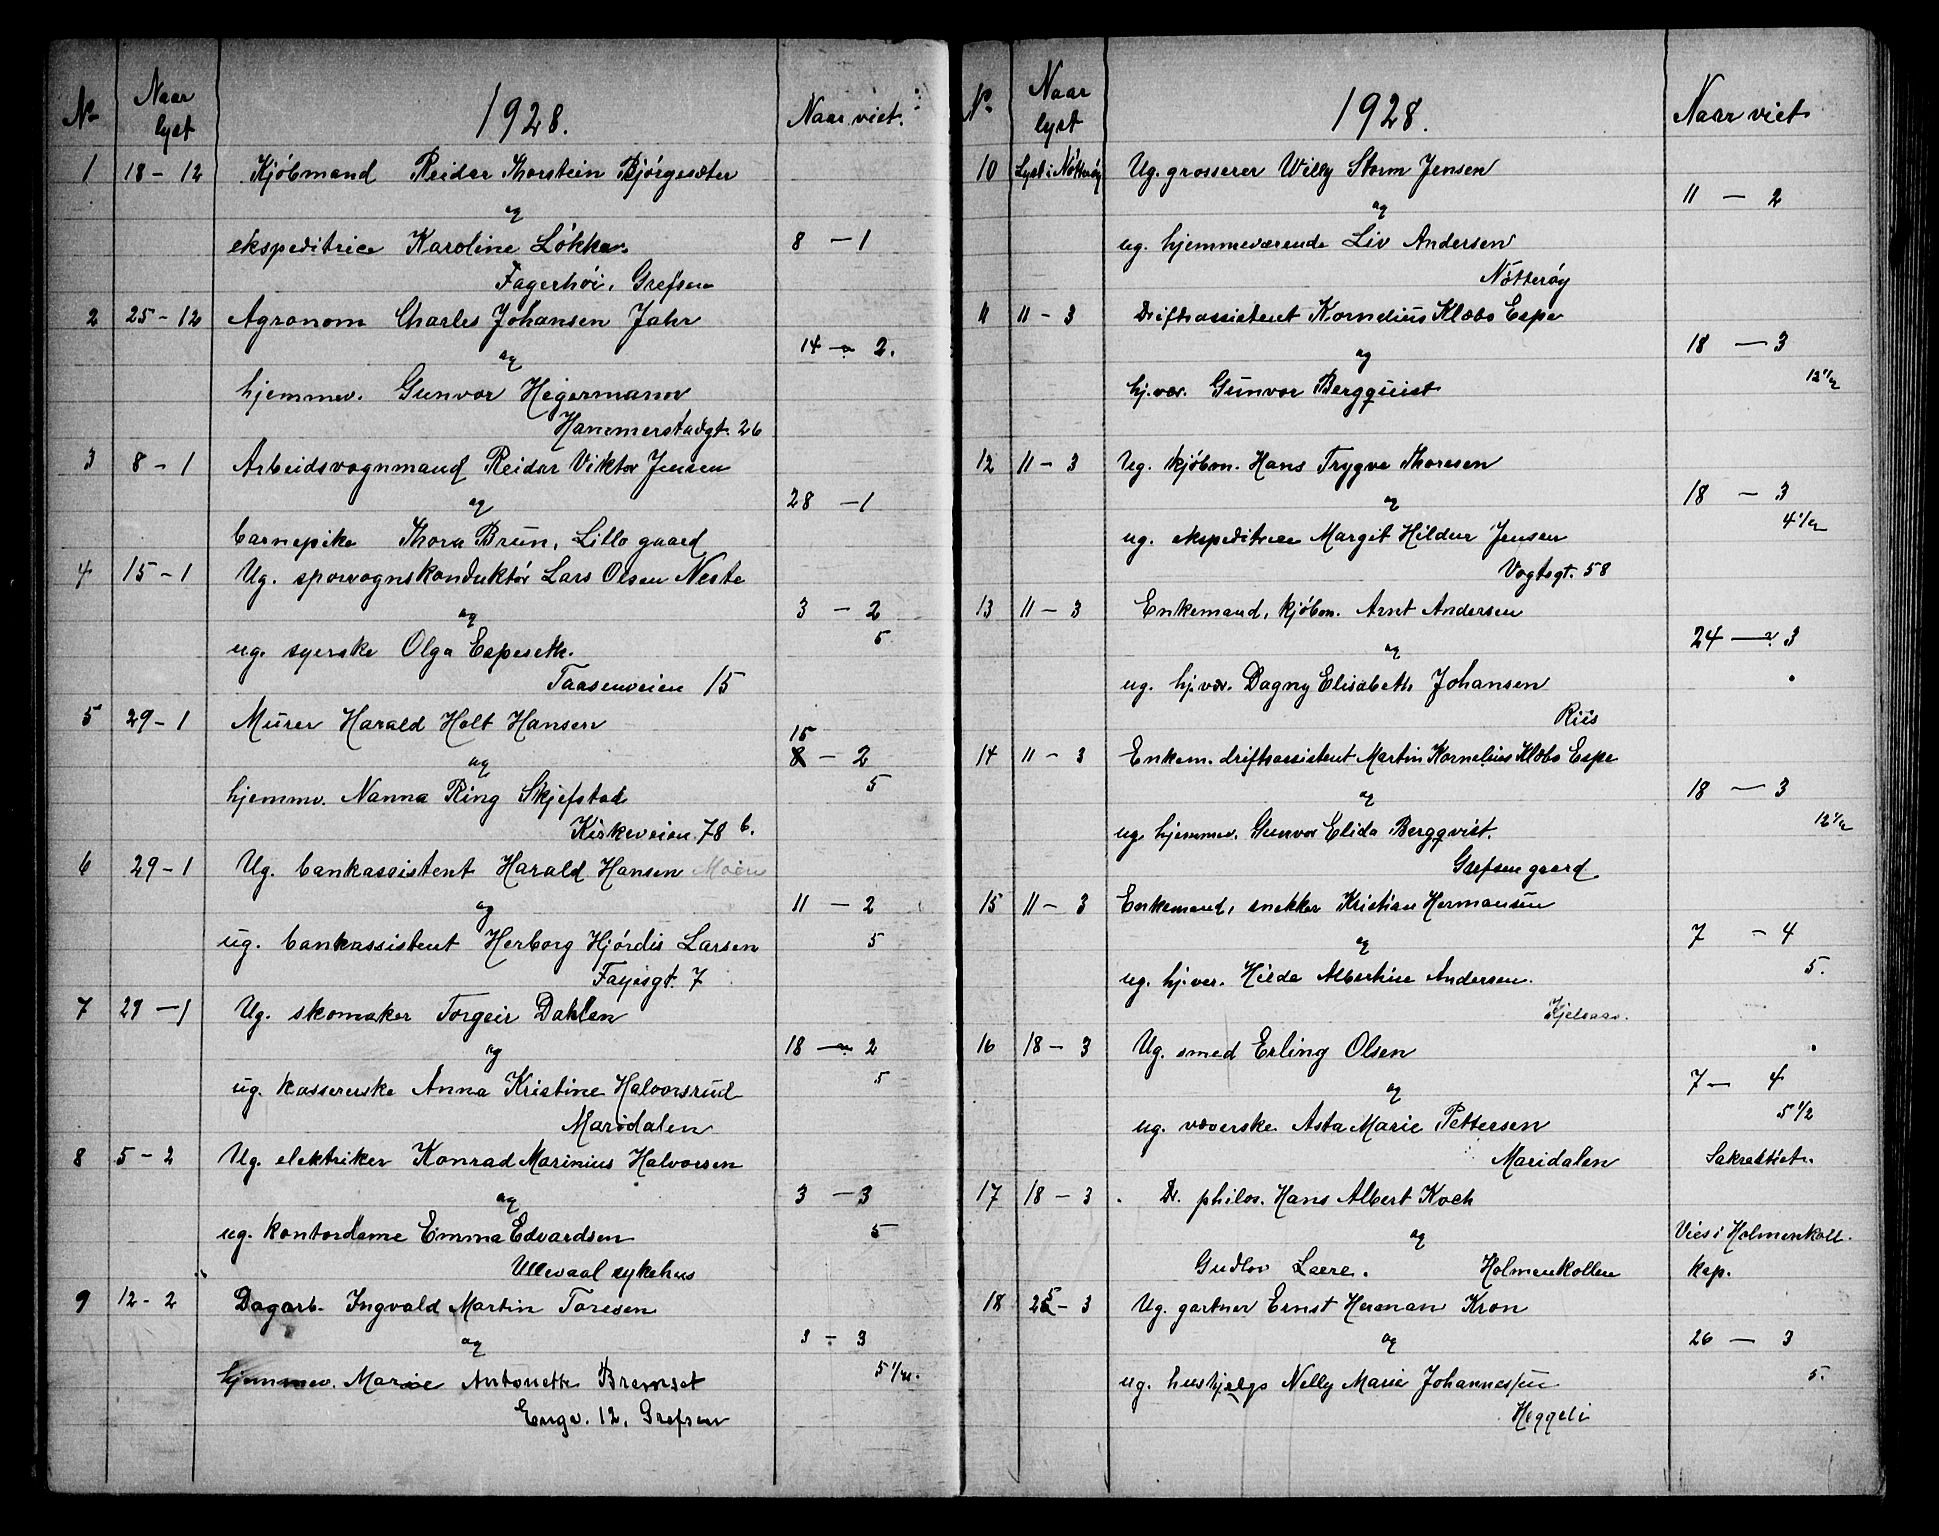 No Naar lyst 1928. Naar viet.
1 18 - 12 Kjøbmand Reidar Thorstein Bjørgesæter
og
ekspeditrice Karoline Løkka. 8 - 1
Fagerhøi, Grefsen
2 25 - 12 Agronom Charles Johansen Jahr
og 14 - 2.
hjemmev. Gunvor Hegermann
Hammerstadgt. 26
3 8 - 1 Arbeidsvognmand Reidar Viktor Jensen
og 28 - 1
barnepike Thora Brun, Lillo gaard
4 15 - 1 Ug. sporvognskonduktør Lars Olsen Neste
og 3 - 2
ug. syerske Olga Espeseth. 5
Taasenveien 15
5 29 - 1 Murer Harald Holt Hansen
og 15 8 - 2
hjemmv. Nanna Ring Skjefstad 5
Kirkeveien 78 b.
6 29 - 1 Ug. bankassistent Harald Hansen Moen
og 11 - 2
ug. bankassistent Herborg Hjørdis Larsen 5
Fayesgt. 7
7 29 - 1 Ug. skomaker Torgeir Dahlen
og 18 - 2
ug. kassererske Anna Kristine Halvorsrud 5
Maridalen
8 5 - 2 Ug. elektriker Konrad Marinius Halvorsen
og 3 - 3
ug. kontordame Emma Edvardsen 5
Ullevaal sykehus
9 12 - 2 Dagarb. Ingvald Martin Toresen
og 3 - 3
hjemmev. Marie Antonette Bremset 5 1/2.
Engv. 12, Grefsen
No Naar lyst 1928. Naar viet
10 Lyst i Nøtterøy Ug. grosserer Willy Storm Jensen
og 11 - 2
ug. hjemmeværende Liv Andersen
Nøtterøy
11 11 - 3 Driftsassistent Kornelius Klæbo Espe
og 18 - 3
hj.vær. Gunvor Bergquist 12 1/2
12 11 - 3 Ug. kjøbm. Hans Trygve Thoresen
og 18 - 3
ug. ekspeditrice Margit Hildur Jensen 4 1/2
Vogtsgt. 58
13 11 - 3 Enkemand, kjøbm. Arnt Andersen
og 24 - 3
ug. hj.vær. Dagny Elisabeth Johansen
Riis
14 11 - 3 Enkem. driftsassistent Martin Kornelius Klæbo Espe
og 18 - 3
ug. hjemmev. Gunvor Elida Bergqvist. 12 1/2
Grefsen gaard
15 11 - 3 Enkemand, snekker Kristian Hermansen
og 7 - 4
ug. hj.vær. Hilda Albertine Andersen. 5.
Kjelsaas.
16 18 - 3 Ug. smed Erling Olsen
og 7 - 4
ug. væverske Asta Marie Pettersen 5 1/2
Maridalen Sakrestiet.
17 18 - 3 Dr. philos. Hans Albert Koch
og Vies i Holmenkoll.
Gudlov Leere. Holmenkollen kap.
18 25 - 3 Ug. gartner Ernst Herman Kron
og 26 - 3
ug. hushjelp Nelly Marie Johannessen 5.
Heggeli